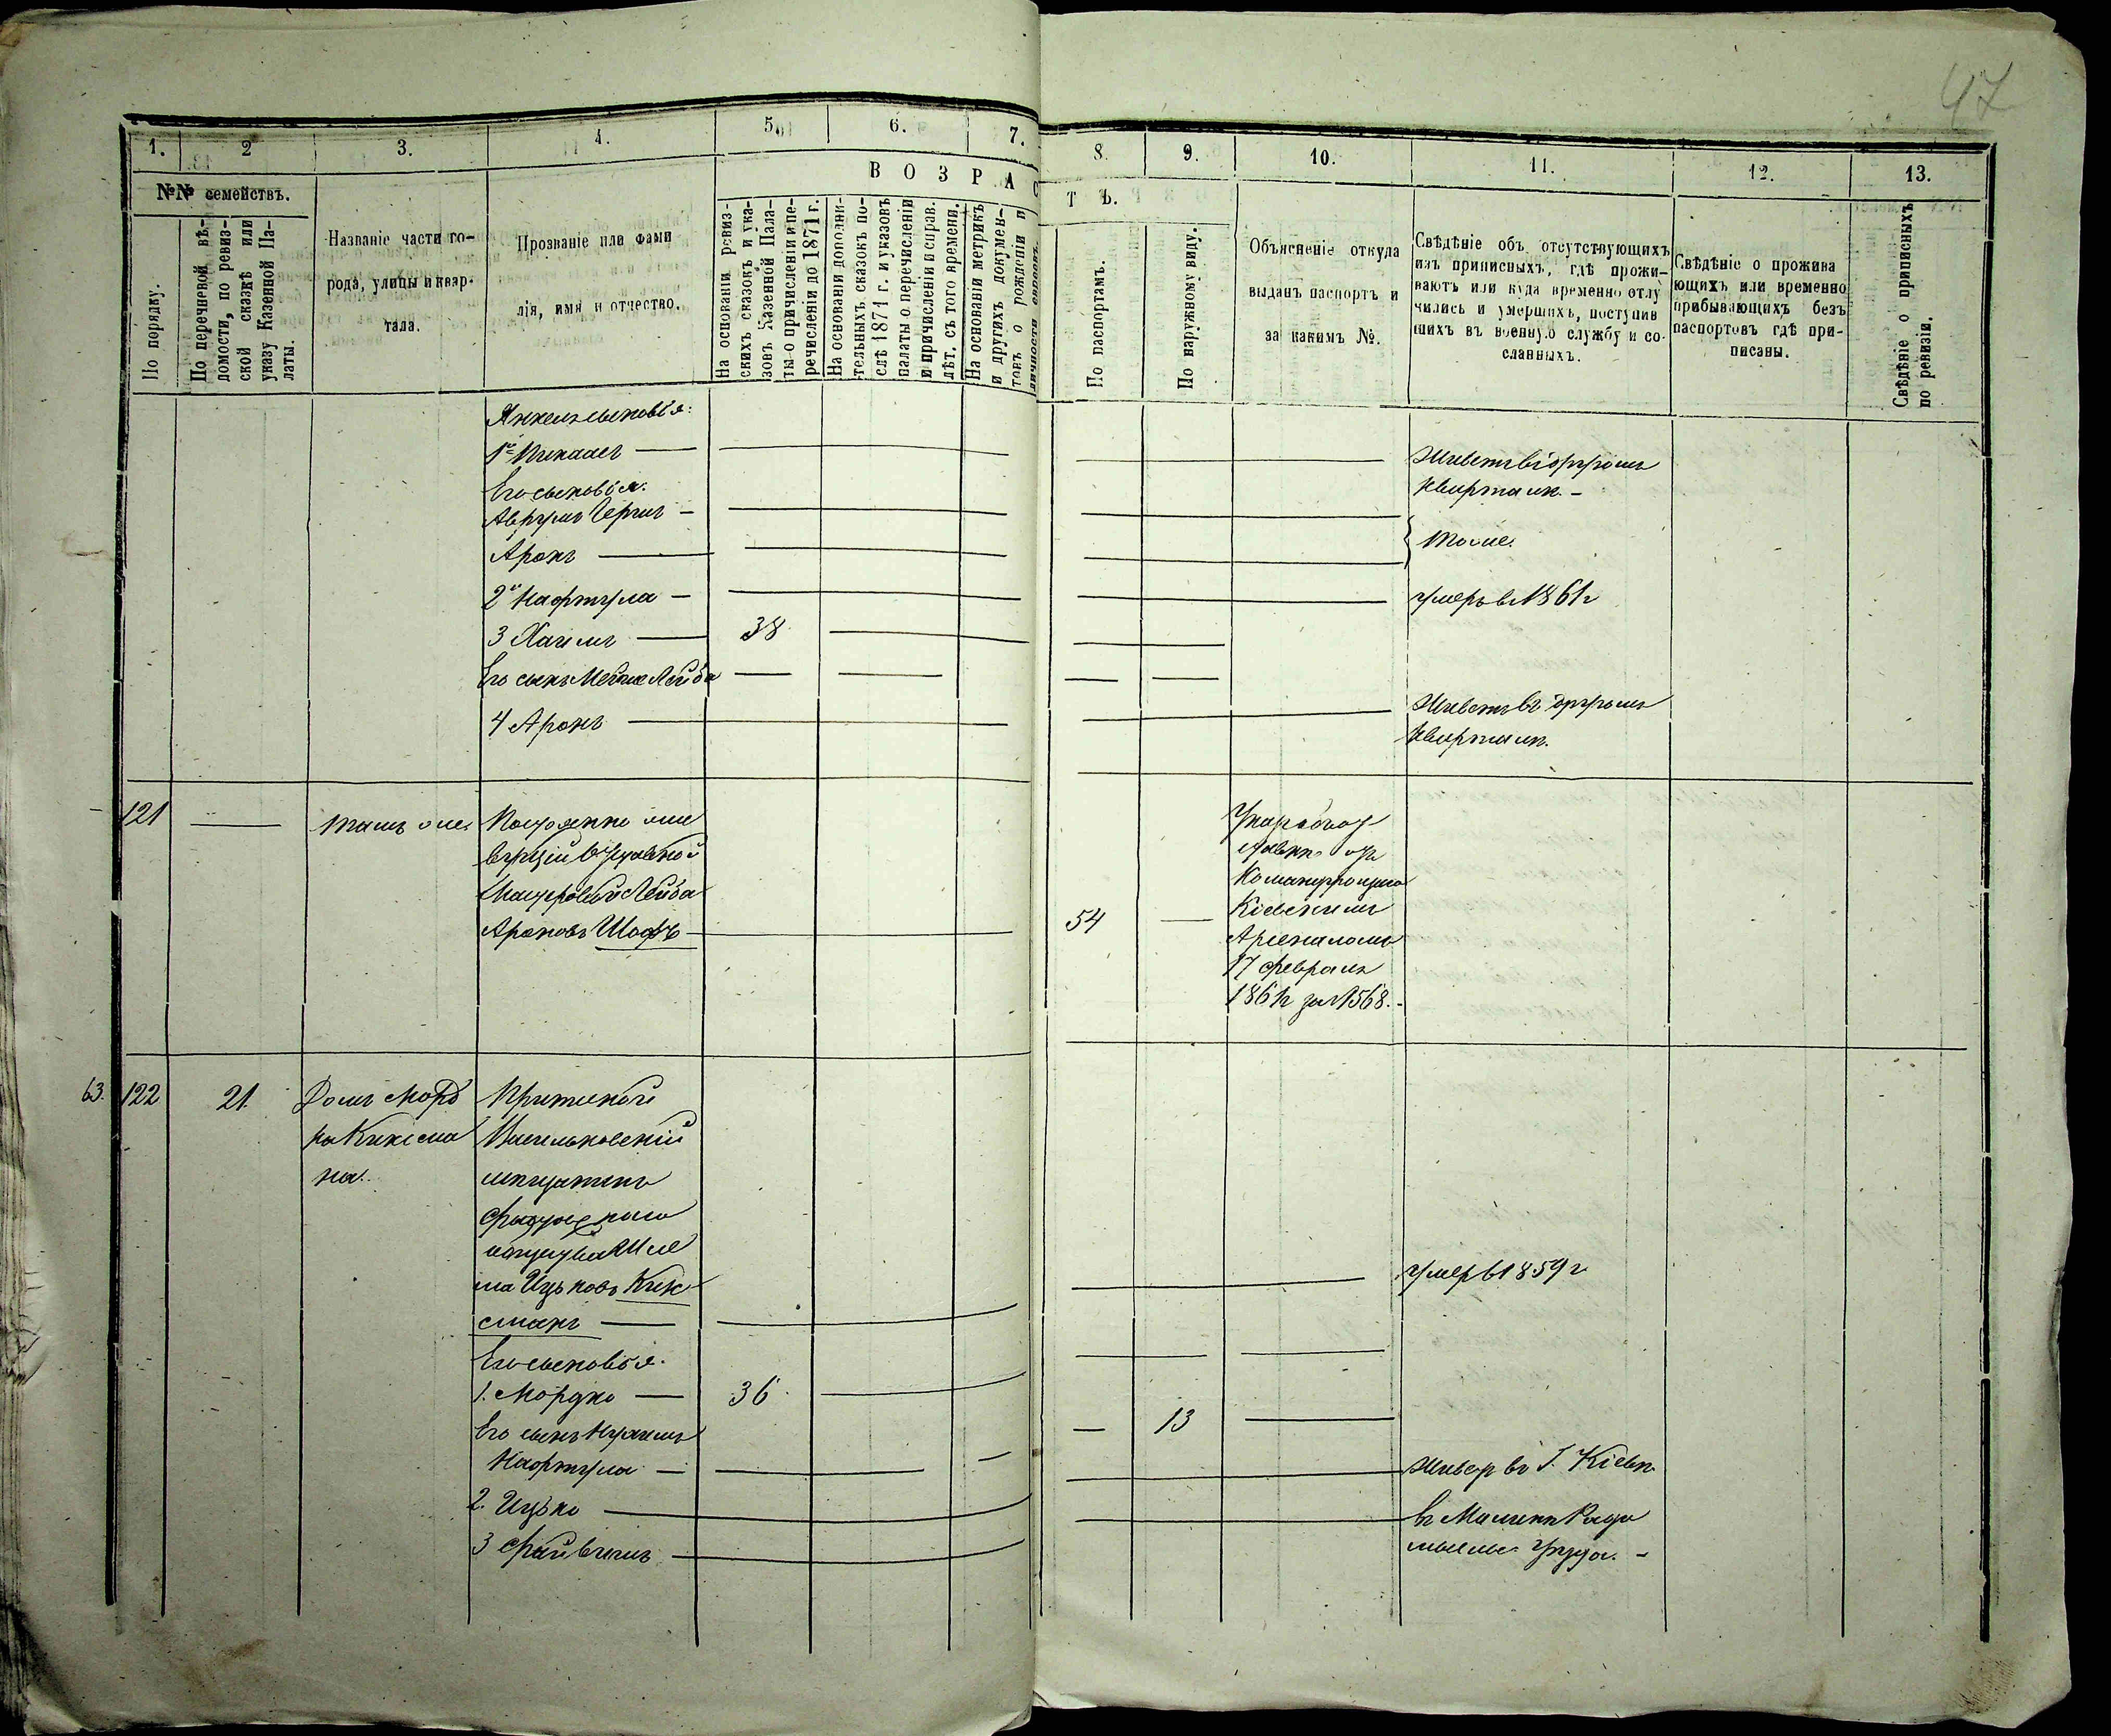 47
1.
2
3.
4.
5.
6.
7.
8.
9.
10.
11.
12.
13.
№№ семействъ.
По порядку.
По перечневой вѣ-
домости, по ревиз-
ской сказкѣ или
указу Казенной Па-
латы.
Названіе части го-
рода, улицы и квар-
тала.
Прозваніе или фами
лія, имя и отчество.
ВОЗРАСТЪ.
На основаніи ревиз-
скихъ сказокъ и ука-
зовъ Казенной Пала-
ты о причисленіи и пе-
речисленіи до 1871 г.
На основаніи дополни-
тельныхъ сказокъ по-
слѣ 1871 г. и указовъ
палаты о перечисленіи
и причисленіи и справ.
лѣт. съ того времени.
На основаніи метрикъ
и другихъ докумен-
товъ о рожденіи и
личности евреевъ.
По паспортамъ.
По наружному виду.
Объясненіе откуда
выданъ паспортъ и
за какимъ №.
Свѣдѣніе объ отсутствующихъ
изъ приписныхъ, гдѣ прожи-
ваютъ или куда временно отлу
чились и умершихъ, поступив
шихъ въ военную службу и со-
сланныхъ.
Свѣдѣніе о прожива
ющихъ или временно
прибывающихъ безъ
паспортовъ гдѣ при-
писаны.
Свѣдѣніе о приписныхъ
по ревизіи.
сыновья:
1й
Живетъ въ другомъ
Его сыновья.
кварталѣ. -
Аврумъ Гершъ
Аронъ
Тоже.
2й Нафтула
умеръ в 1861 г
3 Хаимъ 38
Его сынъ Лейба
4 Аронъ
Живетъ въ другомъ
кварталѣ.
121
Тамъ же
Лейба
Ароновъ Шафъ
54
Командующаго
Кіевскимъ
Арсеналомъ
17 февраля
186 за №568.
63. 122 21.
Домъ Морд
ки Киксма
на.
Васильковскій
мѣщанинъ
ма Ицьковъ Кик
сманъ
умер в 1859 г
Его сыновья.
1. Мордко 36
Его сынъ
Нафтула
13
2. Ицько
Живет въ Г. Кіевѣ
3 Файвишъ
въ Малинѣ Радо
мысль уѣзда. -